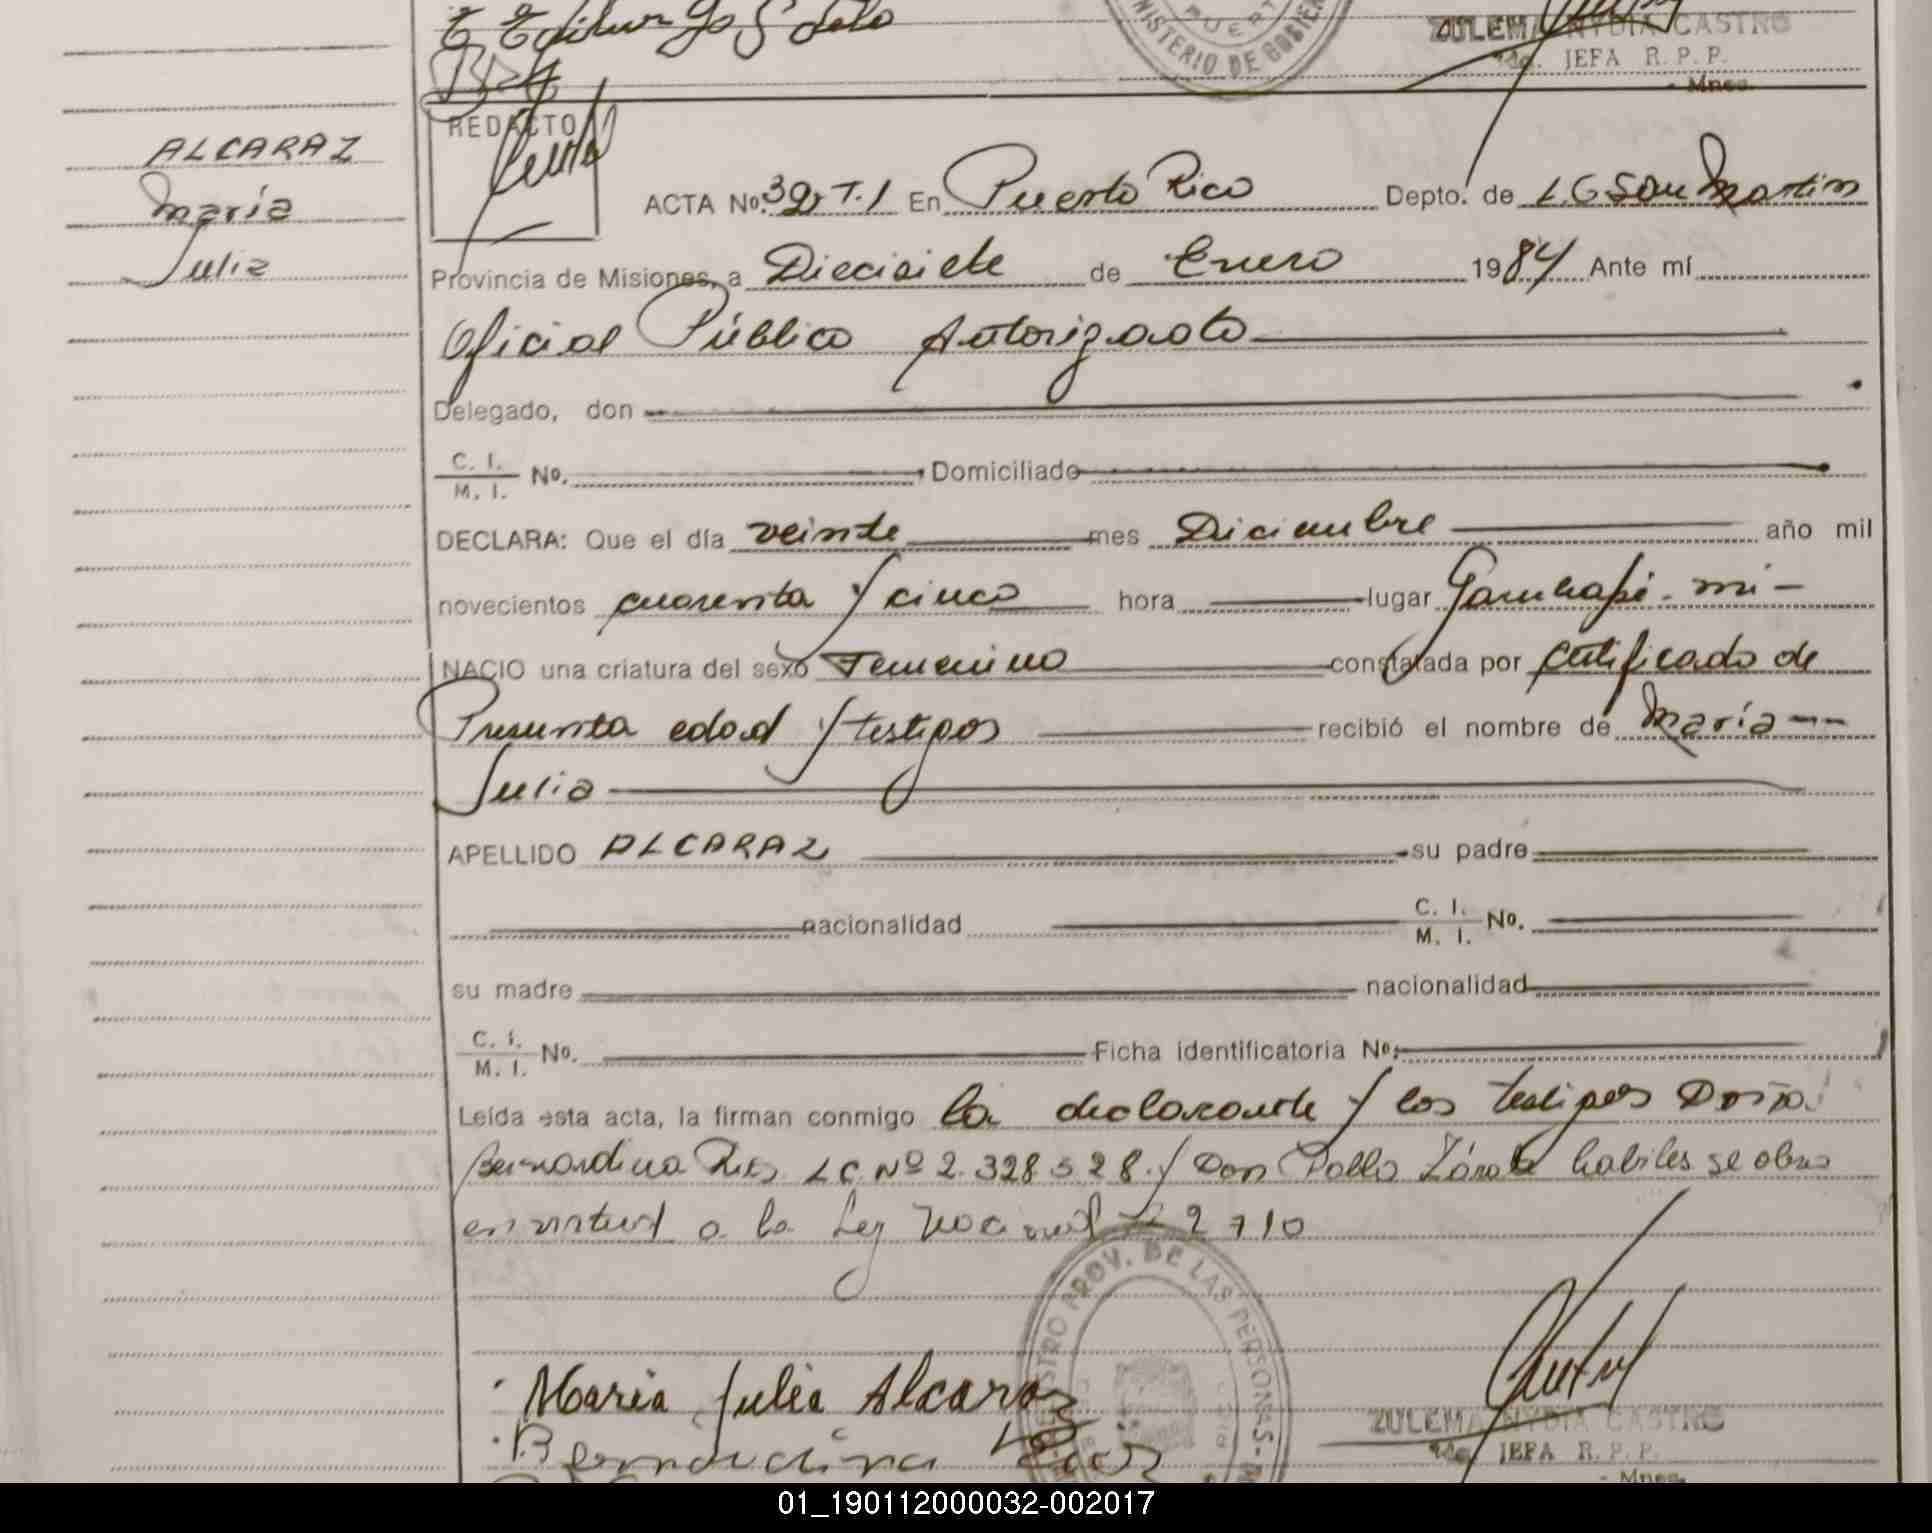 MINISTERIO DE GOBIER
PUERT
ZULEMA NYDIA CASTRO
JEFA R. P. P.
Mnes.
REDACTO
ALCARAZ
María
Julia
ACTA No. 32 T.I En Puerto Rico Depto. de L.G San Martin
Provincia de Misiones, a Diecisiete de Enero 1984 Ante mí
Oficial Público Autorizado
Delegado, don
C. I.
M. I. No. Domiciliado
DECLARA: Que el día veinte mes Diciembre año mil
novecientos cuarenta y cinco hora lugar Garuhapé - mi -
NACIO una criatura del sexo Femenino constatada por certificado de
Presunta edad y testigos recibió el nombre de María --
Julia
APELLIDO ALCARAZ su padre
nacionalidad C. I.
M. I. No.
su madre nacionalidad
C. I.
M. I. No. Ficha identificatoria No.
Leída esta acta, la firman conmigo la declarante y los testigos Doña
Bernardina LC Nº 2.328528 y Don Pablo Zárate habiles se obra
en virtud a la Ley Nacional 22710
REGISTRO PROV. DE LAS PERSONAS-M
Maria Julia Alcaraz
Bernardina
ZULEMA NYDIA CASTRO
JEFA R. P. P.
- Mnes.
01_190112000032-002017